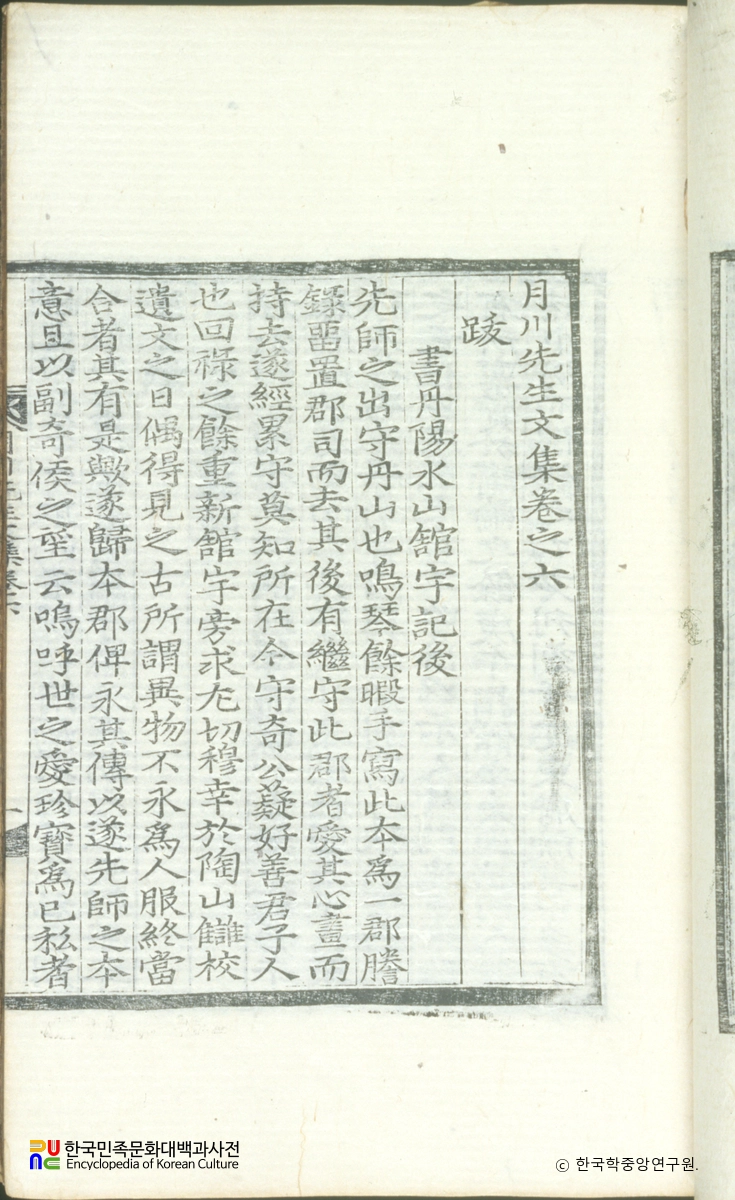 月川先生文集卷之六
跋
書丹陽水山舘宇記後
先師之出守丹山也鳴琴餘暇手寫此本爲一郡謄
錄畱置郡司而去其後有繼守此郡者愛其心畫而
持去遂經累守莫知所在今守奇公薿好善君子人
也回祿之餘重新舘宇旁求尤切稽幸於陶山讎校
遺文之日偶得見之古所謂異物不永爲人服終當
合者其有是歟遂歸本郡俾永其傳以遂先師之本
意且以副奇侯之望云嗚呼世之愛珍寶爲已私者
한국민족문화대백과사전
Encyclopedia of Korean Culture
ⓒ 한국학중앙연구원.